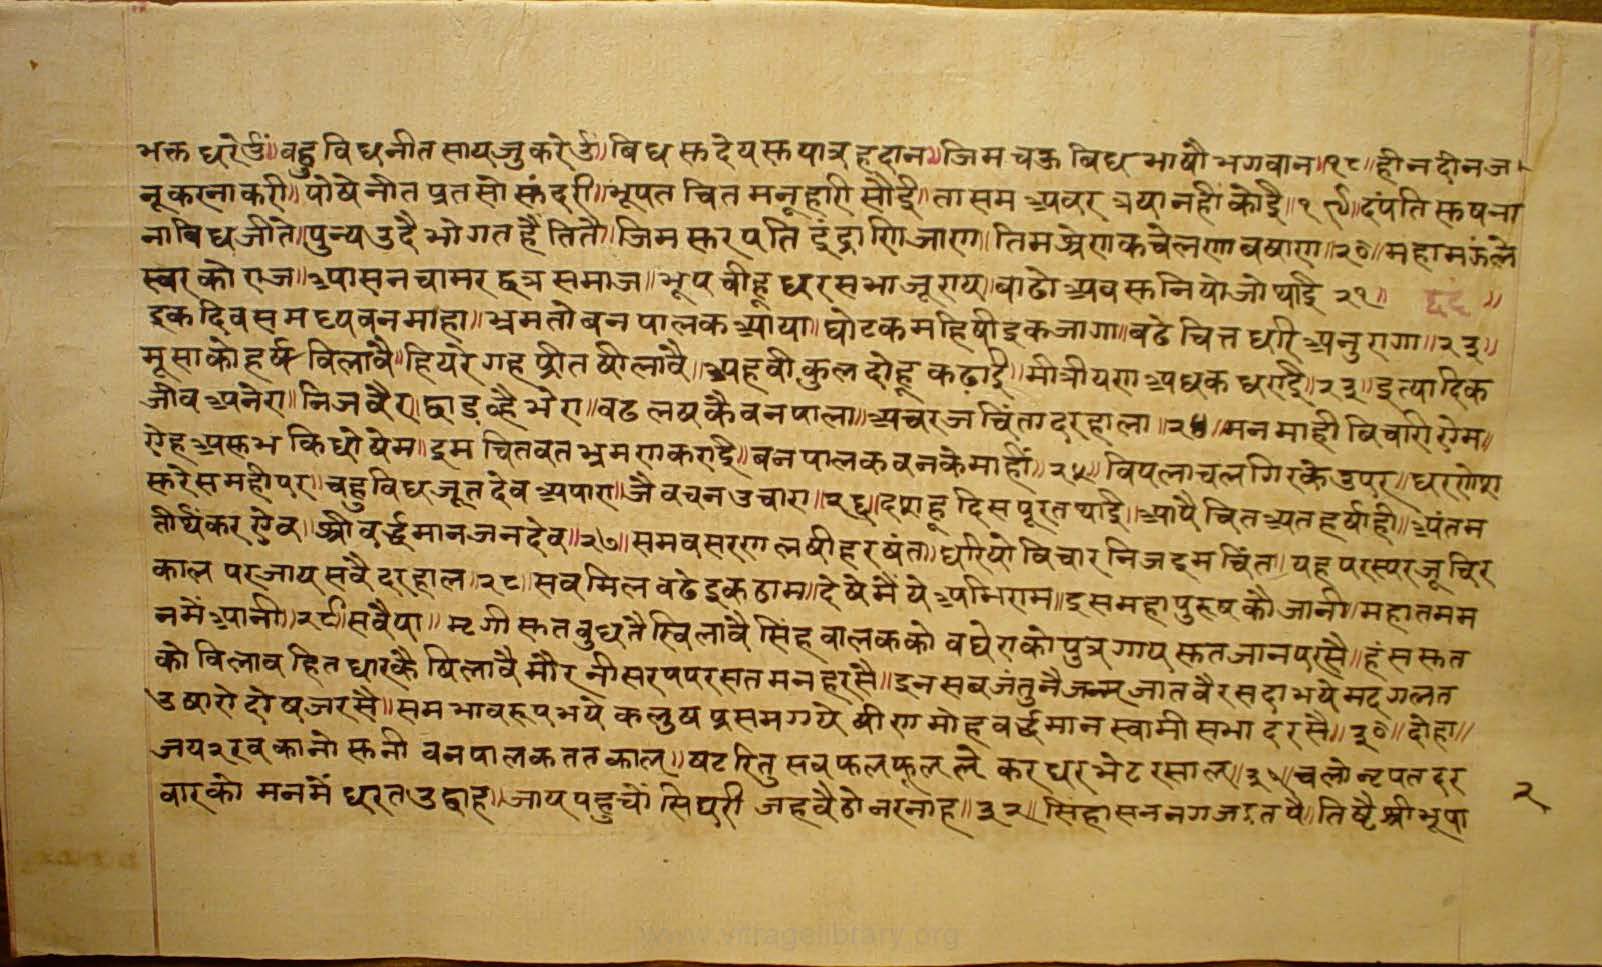 भक्त धरेउं॥ बहु विध नीत साय जु करेउं॥ बिध स्त देय स्त पात्रह दान॥ जिम चऊ बिध भाषौ भगवान॥१८॥ ही न दी न ज
नू करना करी॥ पोषे नौत प्रत सो स्तंदरी॥ भूपत चित मनू हारी सौई॥ ता सम अवर त्रया नही कोई॥१९॥ दंपति स्तष ना
ना बिध जीते॥ पुन्य उदै भोगत हैं तितै॥ जिम स्तरपति इंद्राणि जाण॥ तिम श्रेणक चेलणा वषाण॥२०॥ महा मंडले
स्वर को राज॥ आसन चामर छत्र समाज॥ भूप वीहू धर सभा जू राय॥ बाढो अव स्त नियोजो थाई २१॥
इक दिवस मध्य बन माहा॥ भ्रमतो बन पालक आया॥ घोटक महिषी इक जागा॥ बढे चित्त धरि अनुरागा॥२२॥
मूसा को हर्ष विलावै॥ हियरे गह प्रीत षीलावै॥ अहवी कुल दोहू कढाई॥ मीत्रीयण अधक धराई॥२३॥ इत्यादिक
जीव अनेरा॥ निज वैरा छाड व्है भेरा॥ वढ लष कै वन पाला॥ अचरज चिंता दर हाला॥२४॥ मन माही बिचारी ऐम॥
ऐह अस्तभ किधो षेम॥ इम चितवत भ्रमण कराई॥ बन पालक वन के माहीं॥२५॥ विपलाचल गिर के उपर॥ धरणेश
स्तरेस महीपर॥ बहु विध जूत देव अपारा॥ जै वचन उचारा॥२६॥ दशहू दिस पूरत थाई॥ आपै चित अत हर्याही॥ अंतम
तीर्थंकर ऐव॥ श्री वर्द्धमान जन देव॥२७॥ समवसरण लषी हरषंता॥ धरियो विचार निज इम चिंता॥ यह परस्पर जू चिर
काल परजाय सवै दर हाल॥२८॥ सव मिल वढे इक ठाम॥ देषे मैं ये अभिराम॥ इस महा पुरुष कौ जानी॥ महातम म
न में आनी॥२९॥ सवैया॥ मृगी स्तत वुध तै खिलावै सिंह वालक को वघेरा को पुत्र गाय स्तत जान परसै॥ हंस स्तत
को विलाव हित धारकै षिलावै मौरनी सरप परसत मन हरसै॥ इन सब जंतु नै जन्म जात वैर सदा भये मद गलत
उषारो दोष जरसै॥ सम भाव रूप भये कलुष प्रसम गये षीण मोह वर्द्धमान स्वामी सभा दरसै॥३०॥ दोहा॥
जय२ रव कानो स्तनी वन पालक ततकाल॥ षट रितु सव फल फूल ले कर धर भेट रसाल॥३१॥ चलो नृपत दर
वार को मन में धरत उछाह॥ जाय पहुचों सिघरी जह वैठो नर नाह॥३२॥ सिंहासन नग जडत पै॥ तिष्टै श्री भूपा
२
www.vitragelibrary.org